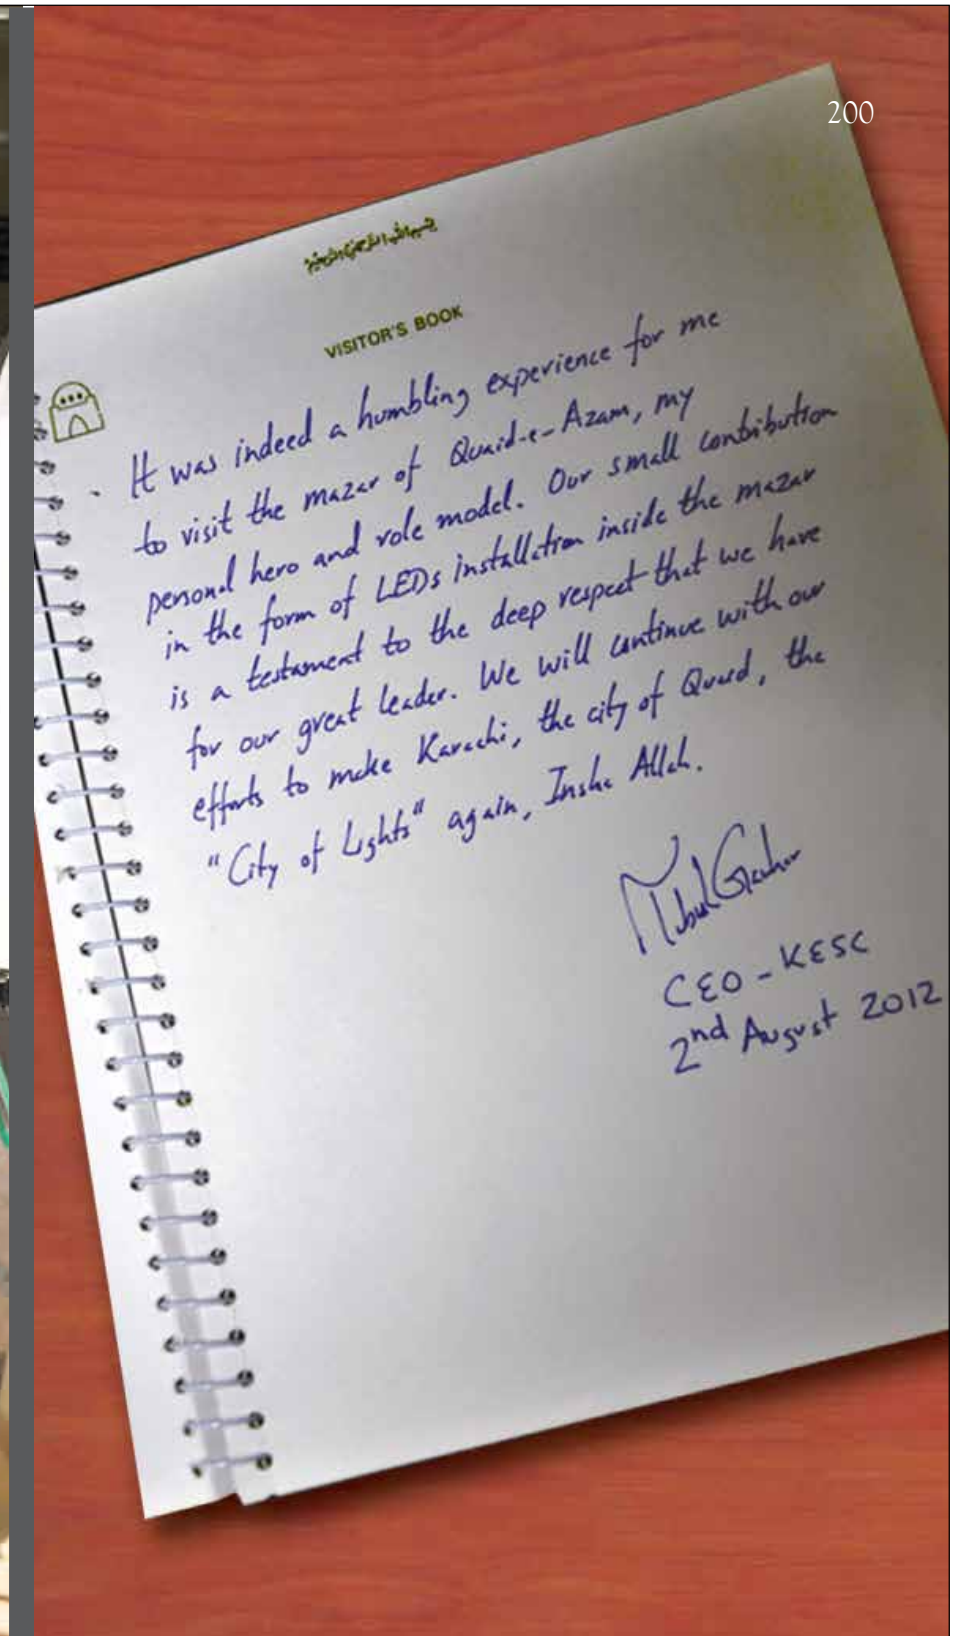 200
بسم الله الرحمن الرحيم
VISITOR'S BOOK
It was indeed a humbling experience for me
to visit the mazar of Quaid-e-Azam, my
personal hero and role model. Our small contribution
in the form of LEDs installation inside the mazar
is a testament to the deep respect that we have
for our great leader. We will continue with our
efforts to make Karachi, the city of Quaid, the
"City of Lights" again, Insha Allah.
CEO - KESC
2nd August 2012